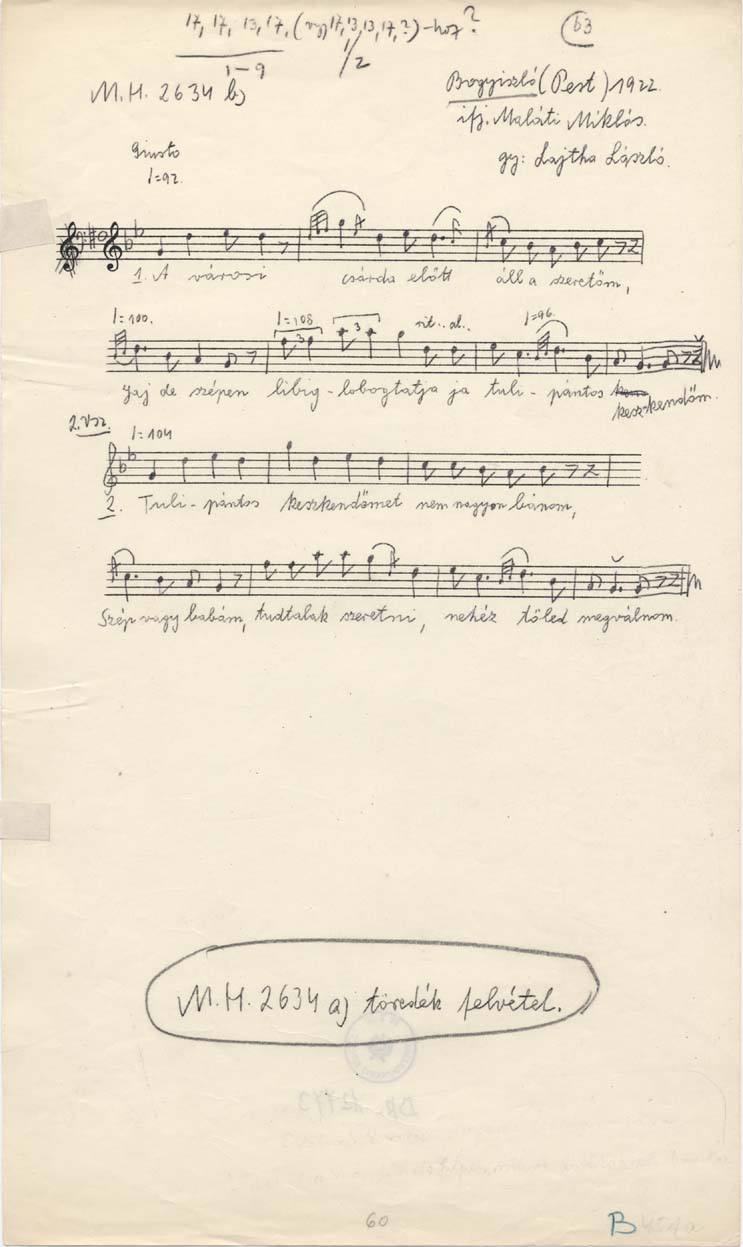 17, 17, 13, 17, (vagy 17, 13, 13, 17, ?) -hoz ?
63
1-9
1/2
M.H. 2634 b)
Bogyiszló (Pest) 1922.
ifj. Maláti Miklós.
gy: Lajtha László.
Giusto
♩=92.
1. A városi csárda előtt áll a szeretőm,
♩=100.
♩=108
3
3
rit. al.
♩=96.
Jaj de szépen libig-lobogtatja ja tuli-pántos
keszkendőm.
2. vsz.
♩=104
2. Tuli-pántos keszkendőmet nem nagyon bánom,
Szép vagy babám, tudtalak szeretni, nehéz tőled megválnom.
M.H. 2634 a) töredék felvétel.
60
B